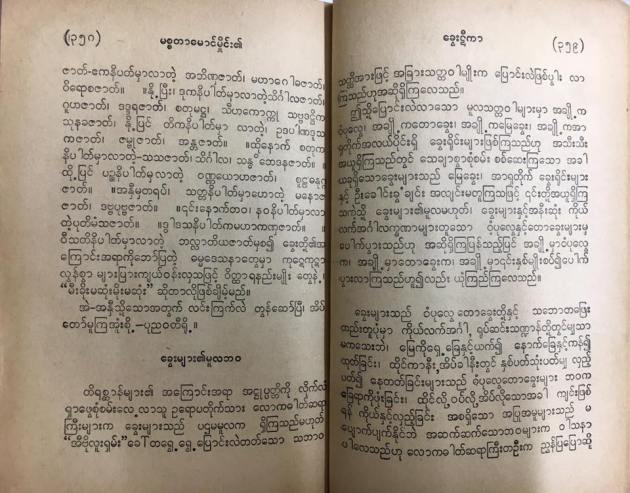 (၃၅၈)
မစ္စတာမောင်မှိုင်း၏
ဇာတ်-ကေနိပတ်မှာလာတဲ့ အဘိဏှဇာတ်၊ မဟာဂေါဓဇာတ်၊
ဝိရောစဇာတ်။ ။နို့ပြီး၊ ဒုကနိပါတ်မှာလာတဲ့သိင်္ဂါလဇာတ်၊
သုနခဇာတ်၊ နို့ပြင် တိကနိပါတ်မှာ လာတဲ့၊ ဥဒပါဏဒူသ
ကဇာတ်၊ ဇမ္ဗူဇာတ်၊ အန္တဇာတ်။ ။ထို့နောက် စတုက္က
နိပါတ်မှာလာတဲ့-သသဇာတ်၊
ထို့ပြင် ပဉ္စနိပါတ်မှာလာတဲ့
ဇာတ်။ ။အနှီမှတရပ်၊ သတ္တနိပါတ်မှာဟောတဲ့ မနောဇ
ဇာတ်၊ ဒဗ္ဗပုပ္ဖဇာတ်။ ။၎င်းနောက်တဝ၊ နဝနိပါတ်မှာလာ
တဲ့ပူတိမံသဇာတ်။ ။ဒွါဒသနိပါတ်ကမဟာကဏှဇာတ်။
ဝီသတိနိပါတ်မှာလာတဲ့ ဘလ္လာတိယဇာတ်မှစ၍ ခွေးတို့၏အ
ကြောင်းအရာကိုဘော်ပြတဲ့ ဓမ္မဒေသနာတွေမှာ
လွန်စွာ များပြားကျယ်ဝန်းလှသဖြင့် ဝိတ္ထာရနည်းမျိုး တွေနဲ့၊
“မီးပိုးမဆုံးမိုးမဆုံး” ဆိုတာလိုဖြစ်ချိမ့်မည်။
အဲ-အနှီသို့သောအတွက် လင်းကြက်လဲ တွန်ဆော်ပြီ၊ အိပ်
တော်မူကြအုံးစို့-ပုညဝတီရို့။
ခွေးများ၏မူလဘဝ
တိရစ္ဆာန်များ၏ အကြောင်းအရာ အဋ္ဌုပ္ပတ္တိကို လိုက်လံ
ရှာဖွေစုံစမ်းလေ့လာသူ ဥရောပတိုက်သား လောကဓါတ်ဆရာ
ကြီးများက ခွေးများသည် ပဌမမူလက ရှိကြသည်မဟုတ်
“အီဗိုလူးရှင်း”ခေါ်တရွေ့ရွေ့ပြောင်းလဲတတ်သော သဘာဝ
ခွေးဋီကာ
(၃၅၉)
သတ္တိအားဖြင့် အခြားသတ္တဝါမျိုးက ပြောင်းလဲဖြစ်ပွါး လာ
ကြသည်ဟုအဆိုရှိကြလေသည်။
ဤသို့ပြောင်းလဲလာသော မူလသတ္တဝါများမှာ အချို့က
ဝံပုလွေ၊ အချို့ကတောခွေး၊ အချို့ကမြေခွေး၊ အချို့ကအာ
ရှတိုက်အလယ်ပိုင်းရှိ ခွေးရိုင်းများဖြစ်ကြသည်ဟု အသီးသီး
အယူရှိကြသည်တွင် သေချာစွာစုံစမ်း စစ်ဆေးကြသော အခါ
ယခုရှိသောခွေးများသည် မြေခွေး၊ အာရှတိုက် ခွေးရိုင်းများ
သကဲ့သို့ ခွေးများ၏မူလမဟုတ်၊ ခွေးများနှင့်အနီးဆုံး ကိုယ်
လက်အင်္ဂါလက္ခဏာများတူသော ဝံပုလွေနှင့်တောခွေးများမှ
ပေါက်ပွားသည်ဟု အဆိုရှိကြပြန်သည့်ပြင် အချို့မှာဝံပုလွေ
က၊ အချို့မှာတောခွေးက၊ အချို့မှာ၎င်းနှစ်မျိုးစပ်၍ပေါက်
ပွားလာကြသည်ဟူ၍လည်း ယုံကြည်ကြလေသည်။
ခွေးများသည် ဝံပုလွေ တောခွေးတို့နှင့် သဘောတဖြေး
ထည်းတူပုံမှာ ကိုယ်လက်အင်္ဂါ ရုပ်ဆင်းသဏ္ဍာန်တို့တွင်မျှသာ
မကသေးဘဲ၊ မြေကိုရှေ့ခြေနှင့်ယက်၍ နောက်ခြေနှင့်ကန်၍
ထုတ်ခြင်း၊ ထိုင်ကာနီး၊အိပ်ခါနီးတွင် နှစ်ပတ်သုံးပတ်မျှ လှည့်
ပတ်၍ နေတတ်ခြင်းများသည် ဝံပုလွေတောခွေးများ ဘဝက
ရန် ကိုယ်နှင့်လှည့်ခြင်း အစရှိသော အပြုအမူများသည် မ
ပျောက်ပျက်နိုင်ဘဲ အဆက်ဆက်သောဘဝများက ဝါသနာ
ပါလေသည်ဟု လောကဓါတ်ဆရာကြီးတဦးက ညွှန်ပြပြောဆို